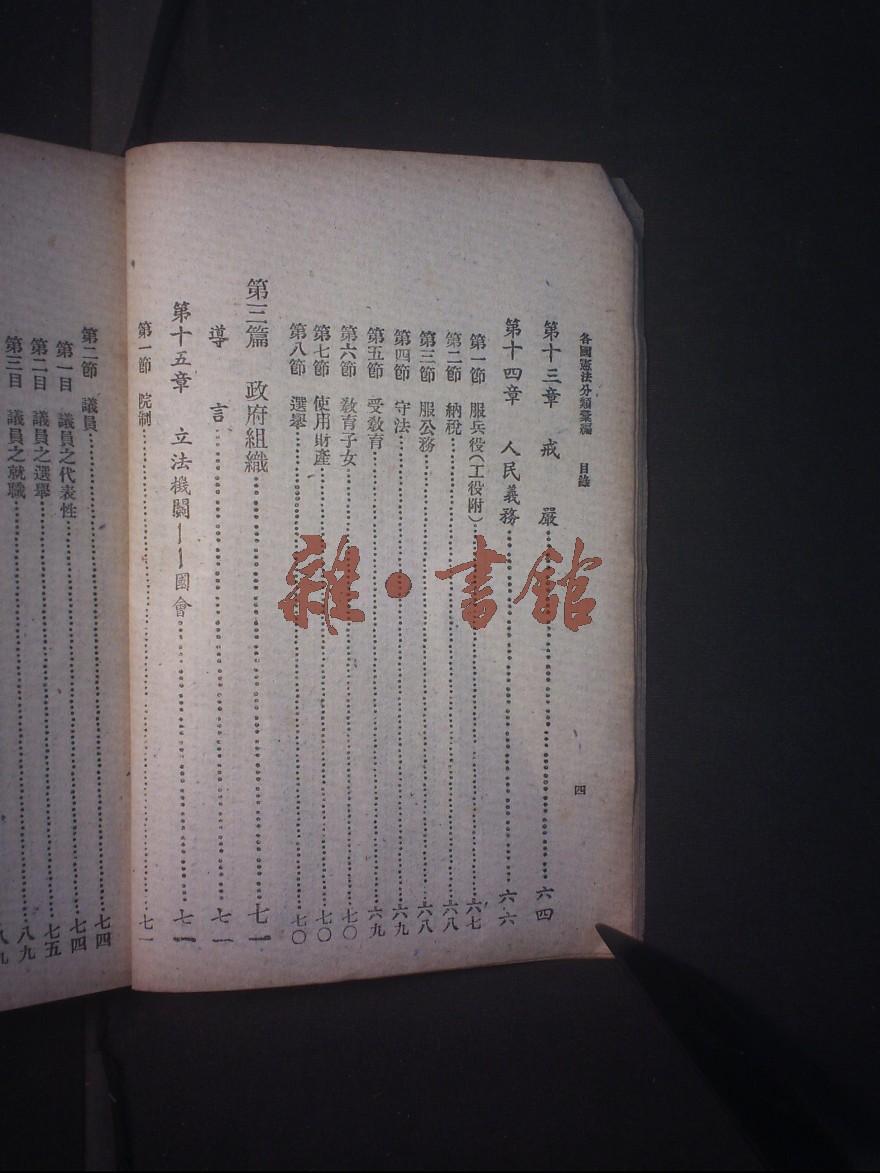 各國憲法分類彙編 目錄 四
第十三章 戒嚴……六四
第十四章 人民義務……六六
第一節 服兵役(工役附)……六七
第二節 納稅……六八
第三節 服公務……六八
第四節 守法……六九
第五節 受敎育……六九
第六節 敎育子女……七〇
第七節 使用財產……七〇
第八節 選舉……七〇
第三篇 政府組織……七一
導言……七一
第十五章 立法機關——國會……七一
第一節 院制……七一
第二節 議員……七四
第一目 議員之代表性……七四
第二目 議員之選舉……七五
第三目 議員之就職……八九
雜·書館